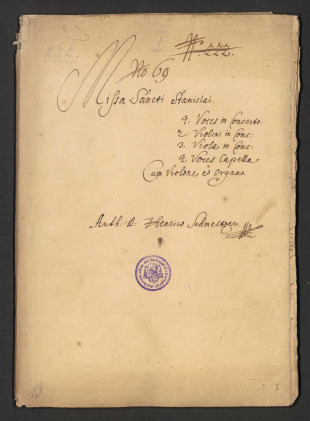 222.
N: 222.
No 69
Missa Sancti Stanislai.
4: Voces in Concerto.
2: Violini in Conc:
3: Viole in Conc:
4 Voces Capella
Cum Violone et Organo.
Auth: D: Henrico Schmeltzer